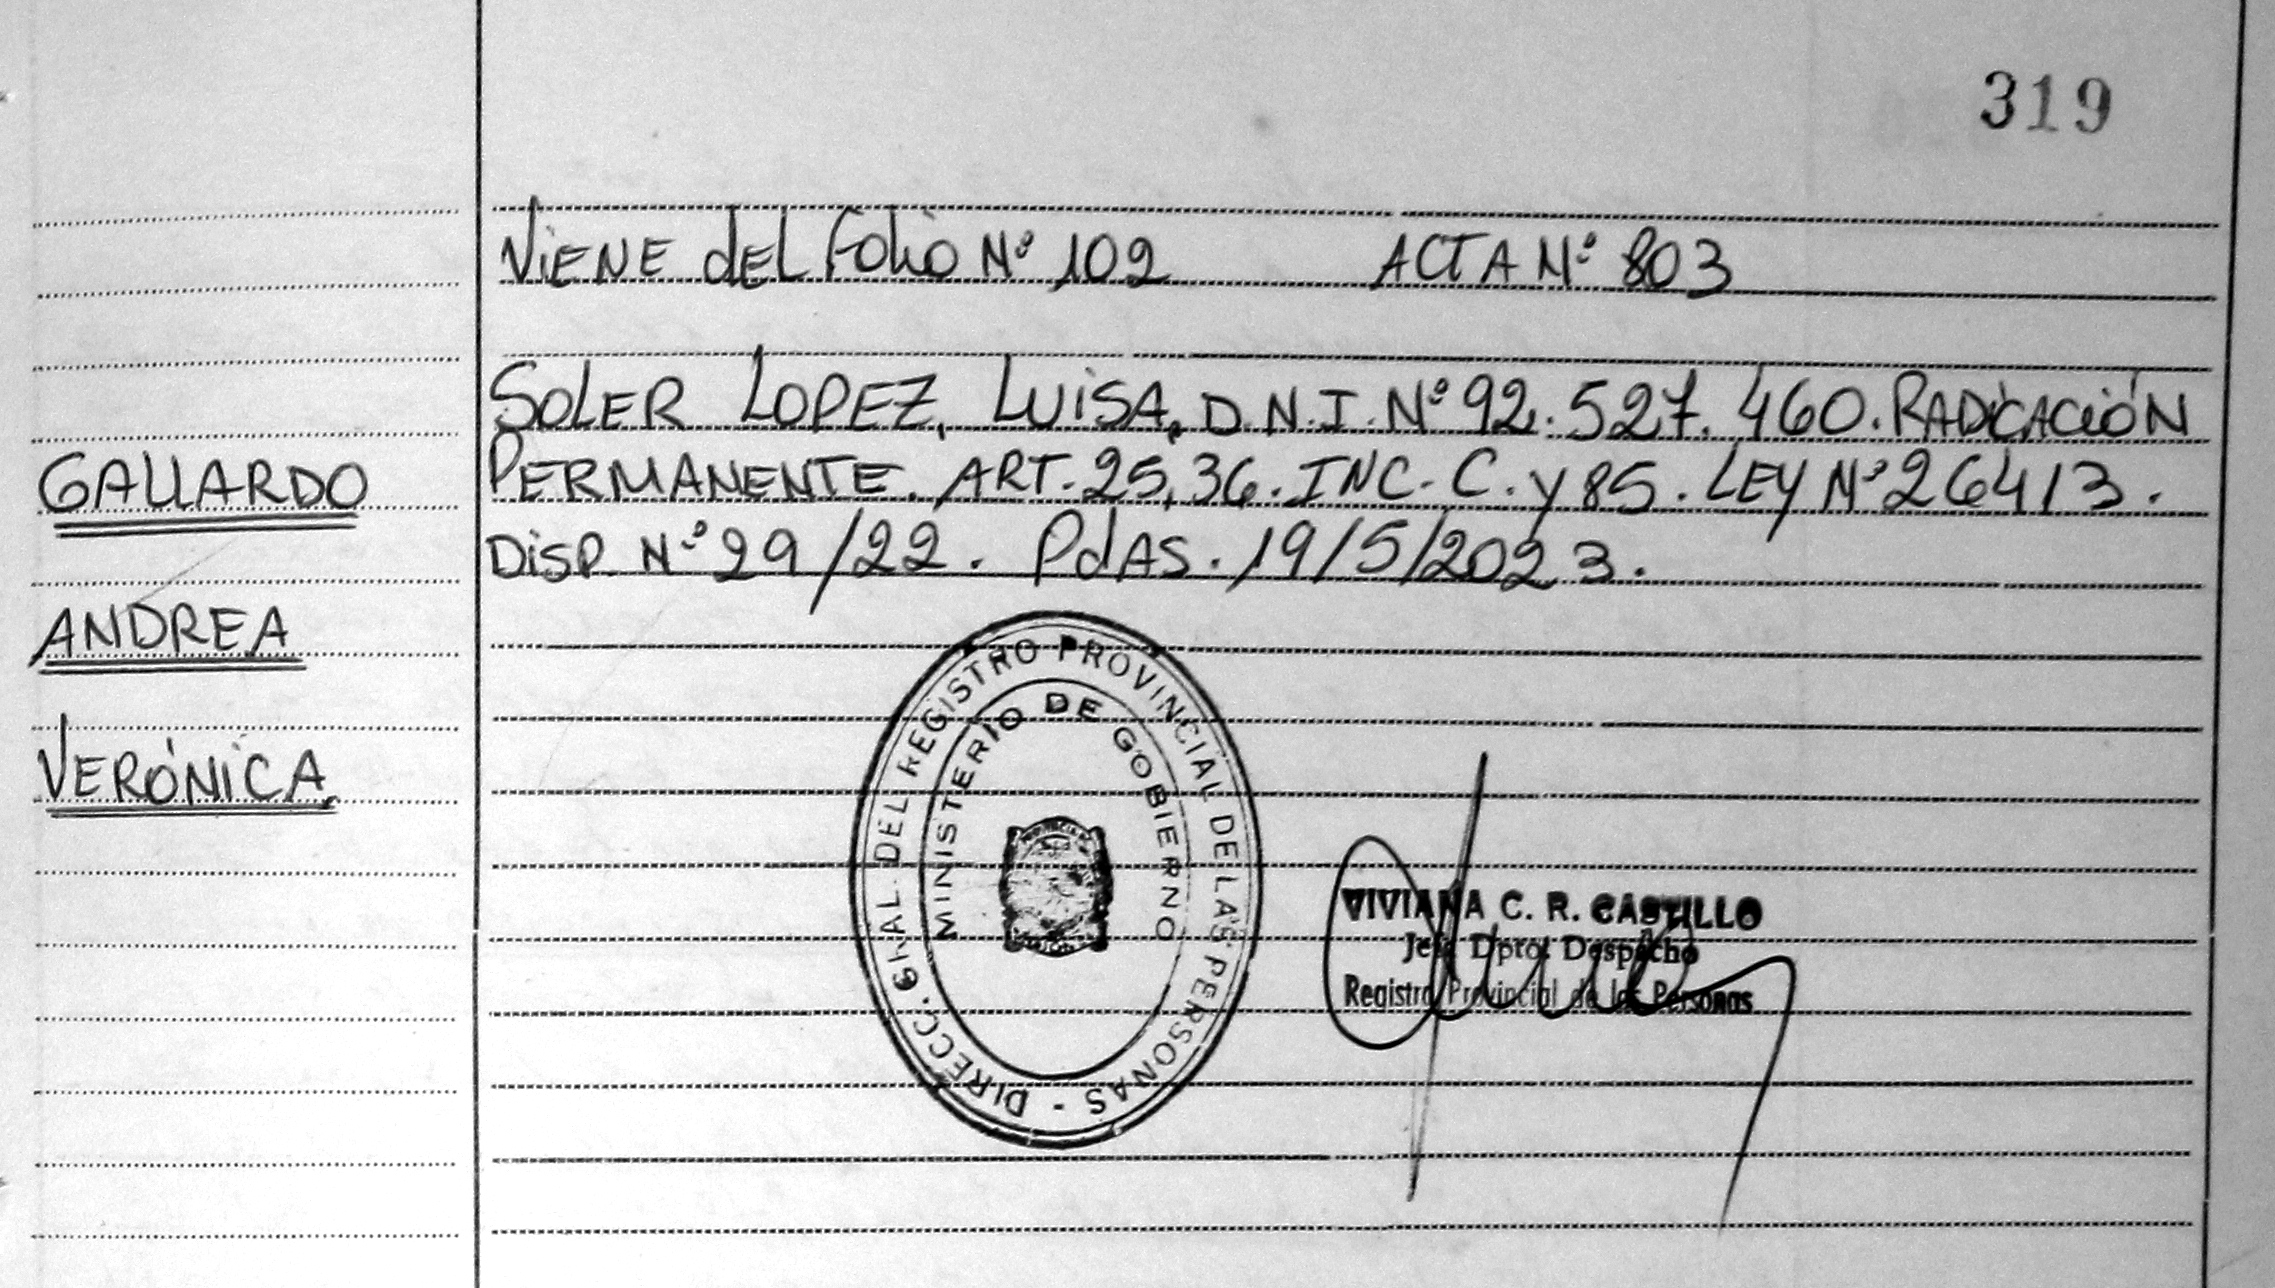 319
ViENE dEL Folio Nº 102 ACTA Nº 803
SOLER LOPEZ, LUiSA, D.N.I. Nº 92.527.460. RADiCACiÓN
PERMANENTE. ART. 25, 36. INC. C. y 85. LEY Nº 26413.
DiSP. Nº 29/22. PdAS. 19/5/2023.
GALLARDO
ANDREA
VERÓNiCA
DIRECC. GRAL. DEL REGISTRO PROVINCIAL DE LAS PERSONAS -
MINISTERIO DE GOBIERNO
VIVIANA C. R. CASTILLO
Jefe Dpto. Despacho
Registro Provincial de las Personas